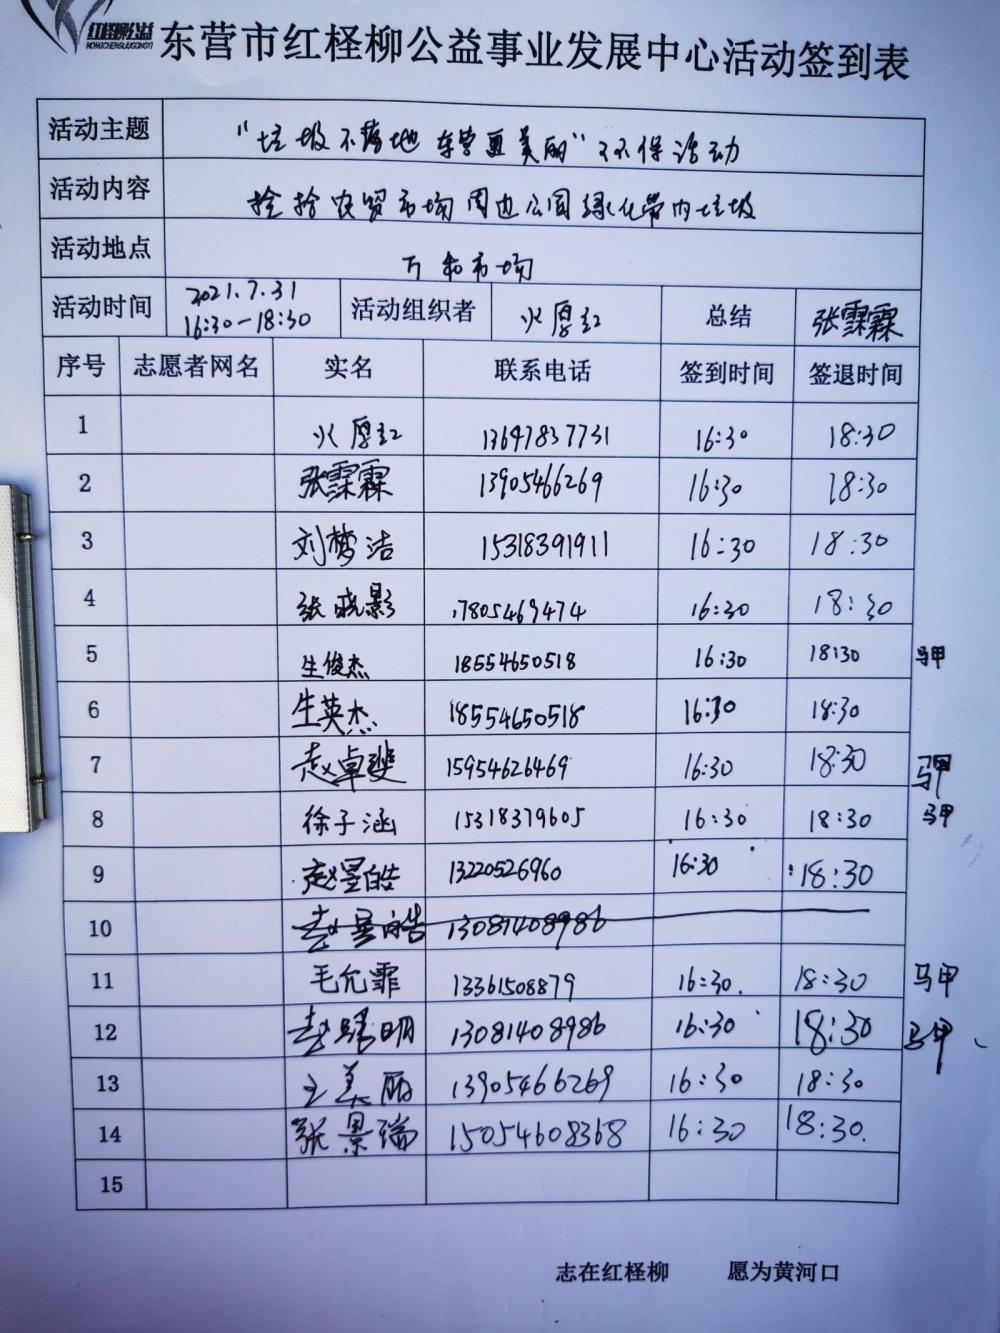 红柽柳公益
HONGCHENGLIUGONGYI
东营市红柽柳公益事业发展中心活动签到表
活动主题 “垃圾不落地 东营更美丽”环保活动
活动内容 捡拾农贸市场周边公园绿化带内垃圾
活动地点 万和市场
活动时间 2021.7.31 16:30-18:30 活动组织者 火厚红 总结 张霖霖
序号 志愿者网名 实名 联系电话 签到时间 签退时间
1 火厚红 13647837731 16:30 18:30
2 张霖霖 13905466269 16:30 18:30
3 刘梦洁 15318391911 16:30 18:30
4 张晓影 17805469474 16:30 18:30
5 生俊杰 18554650518 16:30 18:30 马甲
6 生英杰 18554650518 16:30 18:30
7 赵卓斐 15954626469 16:30 18:30 马甲
8 徐子涵 15318379605 16:30 18:30 马甲
9 赵昱皓 13220526960 16:30 18:30
10 赵昱皓 13081408986
11 毛允霏 13361508879 16:30 18:30 马甲
12 赵 明 13081408986 16:30 18:30 马甲
13 王美丽 13905466269 16:30 18:30
14 张景瑞 15054608368 16:30 18:30
15
志在红柽柳 愿为黄河口